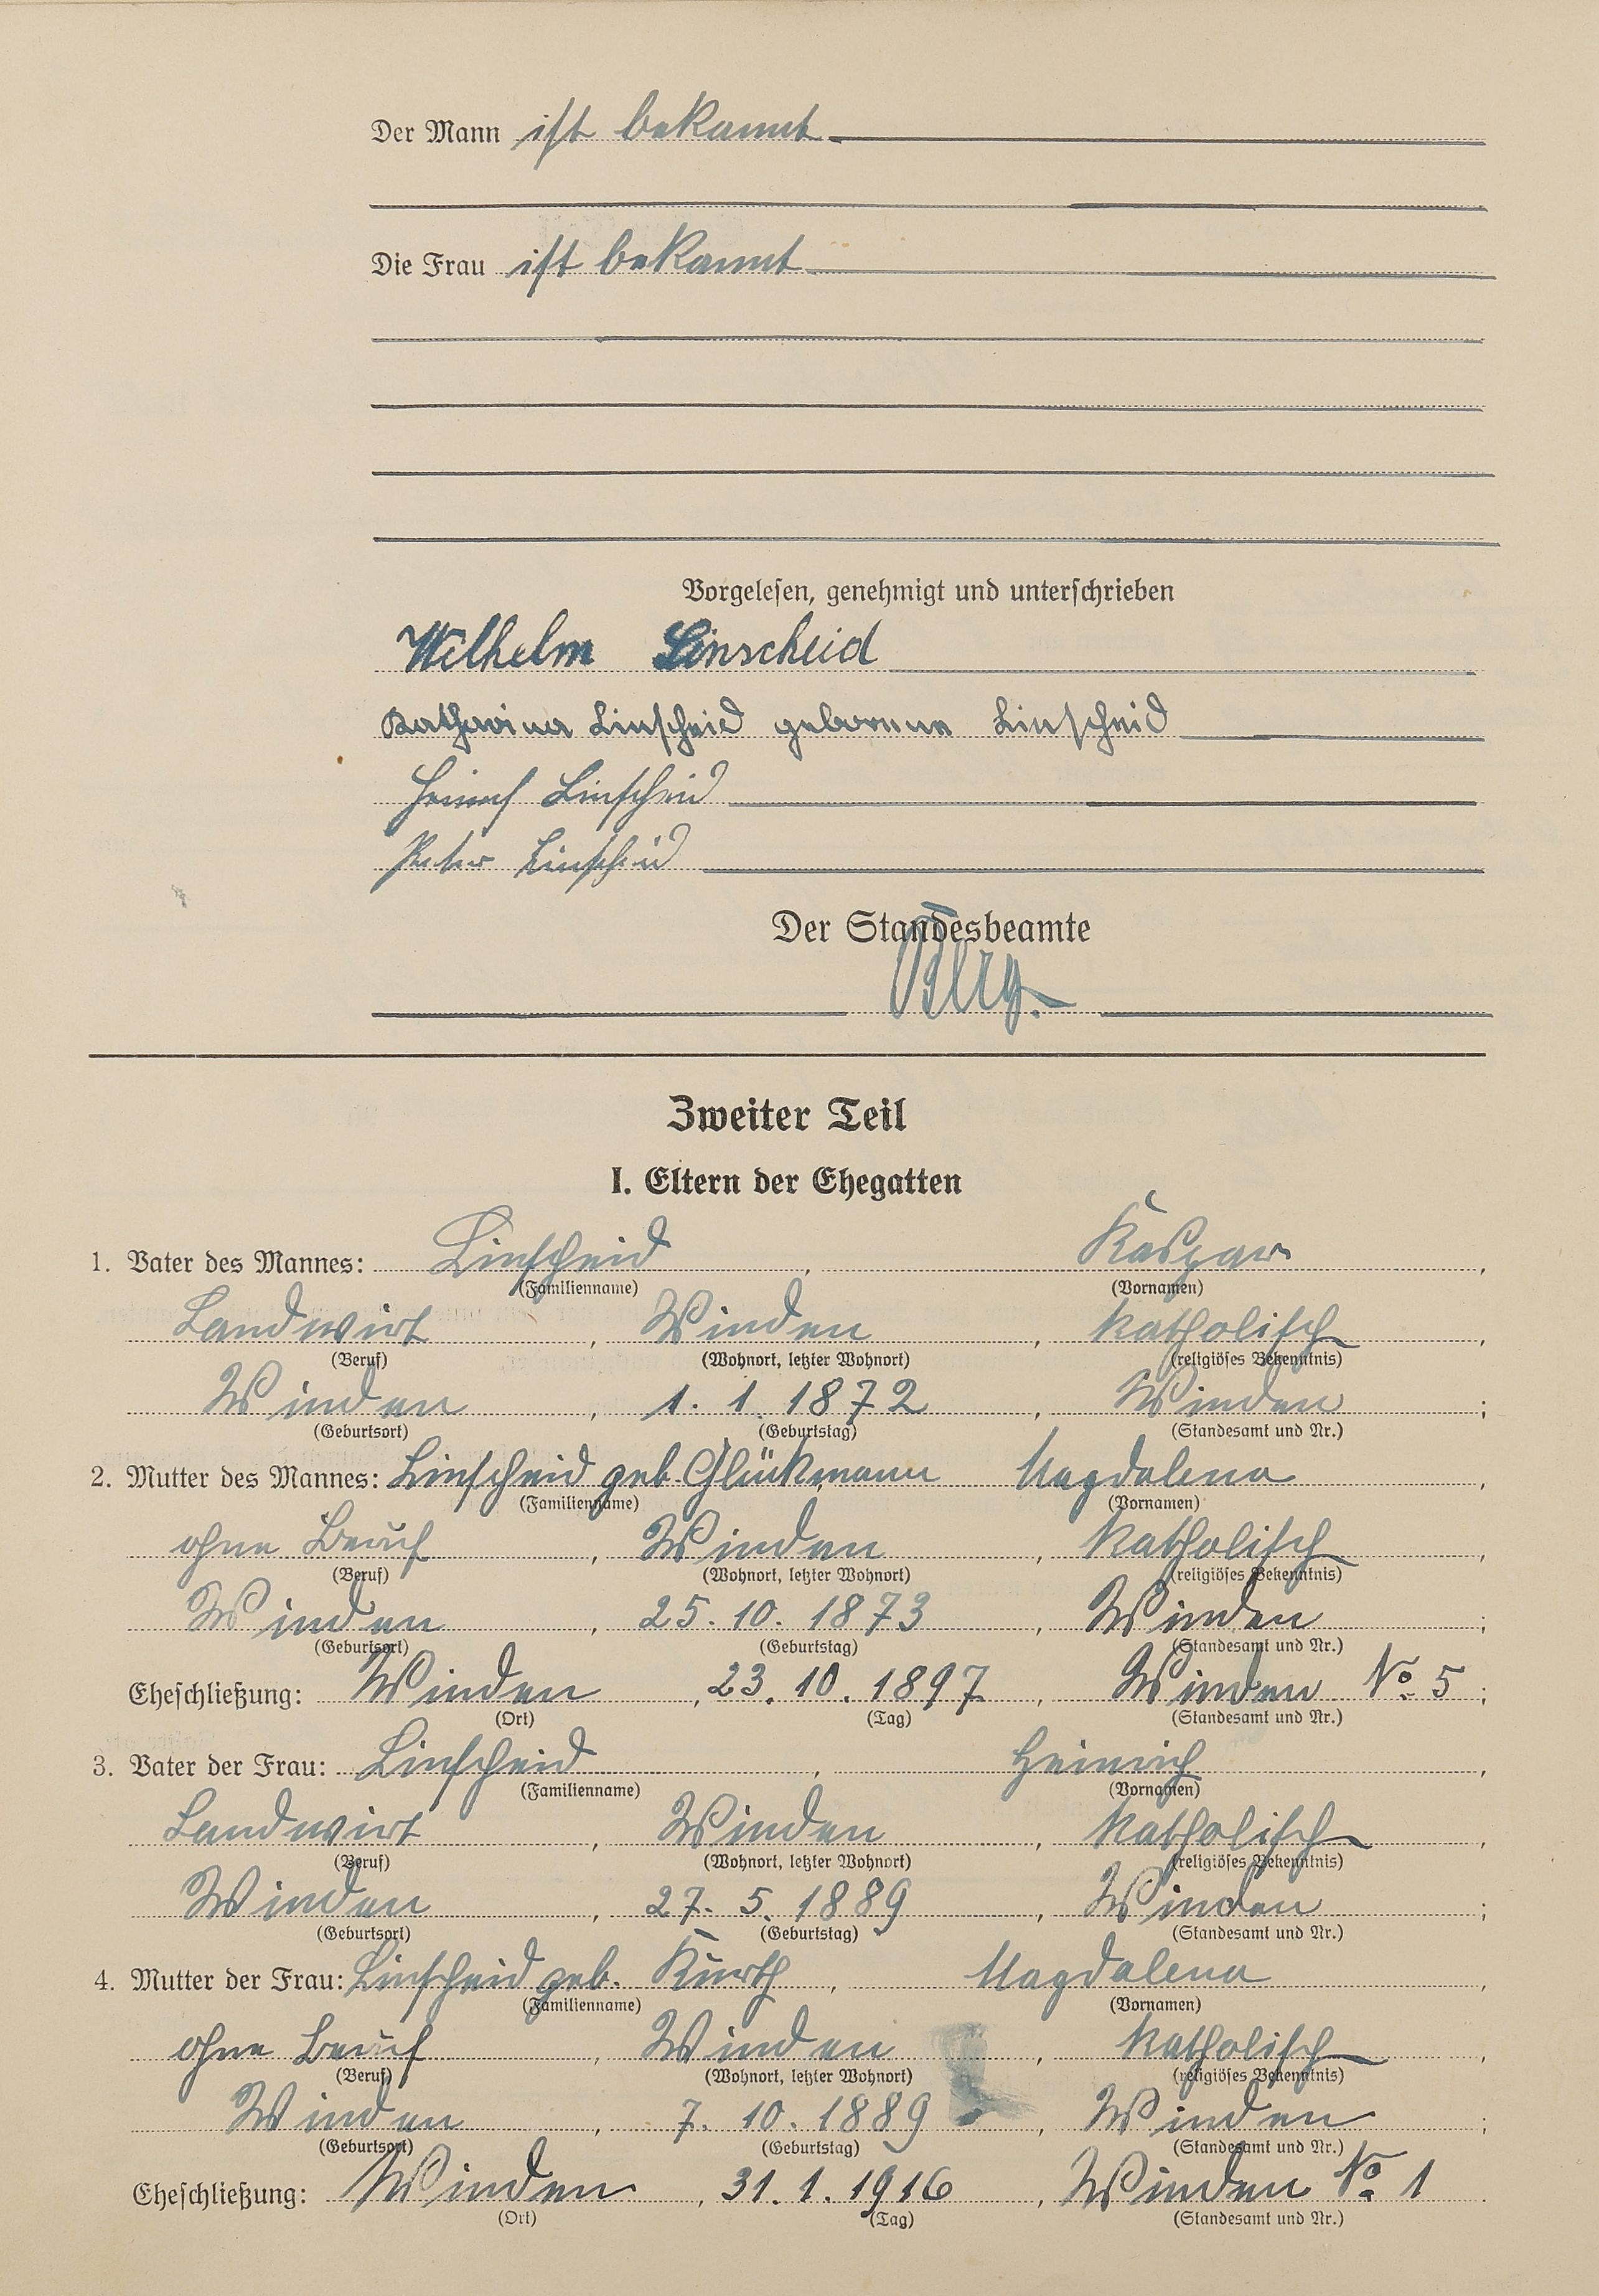 Der Mann ist bekannt.
Die Frau ist bekannt
Vorgelesen, genehmigt und unterschrieben
Wilhelm Linscheid
Katharina Linscheid geborene Linscheid
Heinrich Linscheid
Peter Linscheid
Der Standesbeamte
Berg.
Zweiter Teil
I. Eltern der Ehegatten
1. Vater des Mannes: Linscheid, Kaspar,
(Familienname) (Vornamen)
Landwirt, Winden, katholisch,
(Beruf) (Wohnort, letzter Wohnort) (religiöses Bekenntnis)
Winden, 1. 1. 1872, Winden;
(Geburtsort) (Geburtstag) (Standesamt und Nr.)
2. Mutter des Mannes: Linscheid geb. Glückmann, Magdalena,
(Familienname) (Vornamen)
ohne Beruf, Winden, katholisch,
(Beruf) (Wohnort, letzter Wohnort) (religiöses Bekenntnis)
Winden, 25. 10. 1873, Winden;
(Geburtsort) (Geburtstag) (Standesamt und Nr.)
Eheschließung: Winden, 23. 10. 1897, Winden No. 5;
(Ort) (Tag) (Standesamt und Nr.)
3. Vater der Frau: Linscheid, Heinrich,
(Familienname) (Vornamen)
Landwirt, Winden, katholisch,
(Beruf) (Wohnort, letzter Wohnort) (religiöses Bekenntnis)
Winden, 27. 5. 1889, Winden;
(Geburtsort) (Geburtstag) (Standesamt und Nr.)
4. Mutter der Frau: Linscheid geb. Kurth, Magdalena,
(Familienname) (Vornamen)
ohne Beruf, Winden, katholisch,
(Beruf) (Wohnort, letzter Wohnort) (religiöses Bekenntnis)
Winden, 7. 10. 1889, Winden;
(Geburtsort) (Geburtstag) (Standesamt und Nr.)
Eheschließung: Winden, 31. 1. 1916, Winden No. 1.
(Ort) (Tag) (Standesamt und Nr.)